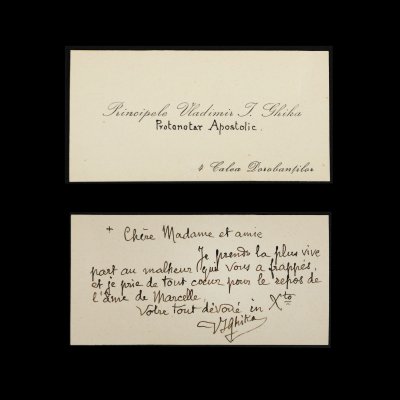 Principele Vladimir I. Ghika
Protonotar Apostolic.
4 Calea Dorobanţilor
+ Chère Madame et amie
Je prends la plus vive
part au malheur qui vous a frappés,
et je prie de tout cœur pour le repos de
l'âme de Marcelle.
Votre tout dévoué in Xto
VIGhika